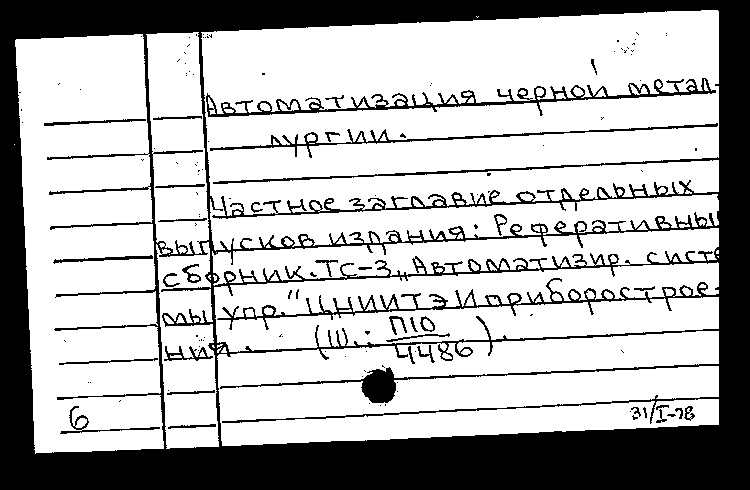 Автоматизация черной метал-
лургии.
Частное заглавие отдельных
выпусков издания: Реферативны
сборник. ТС-3 „Автоматизир. систе
мы упр." ЦНИИТЭИприборострое-
ния. (Ш.: П10
4486).
6
31/I-78